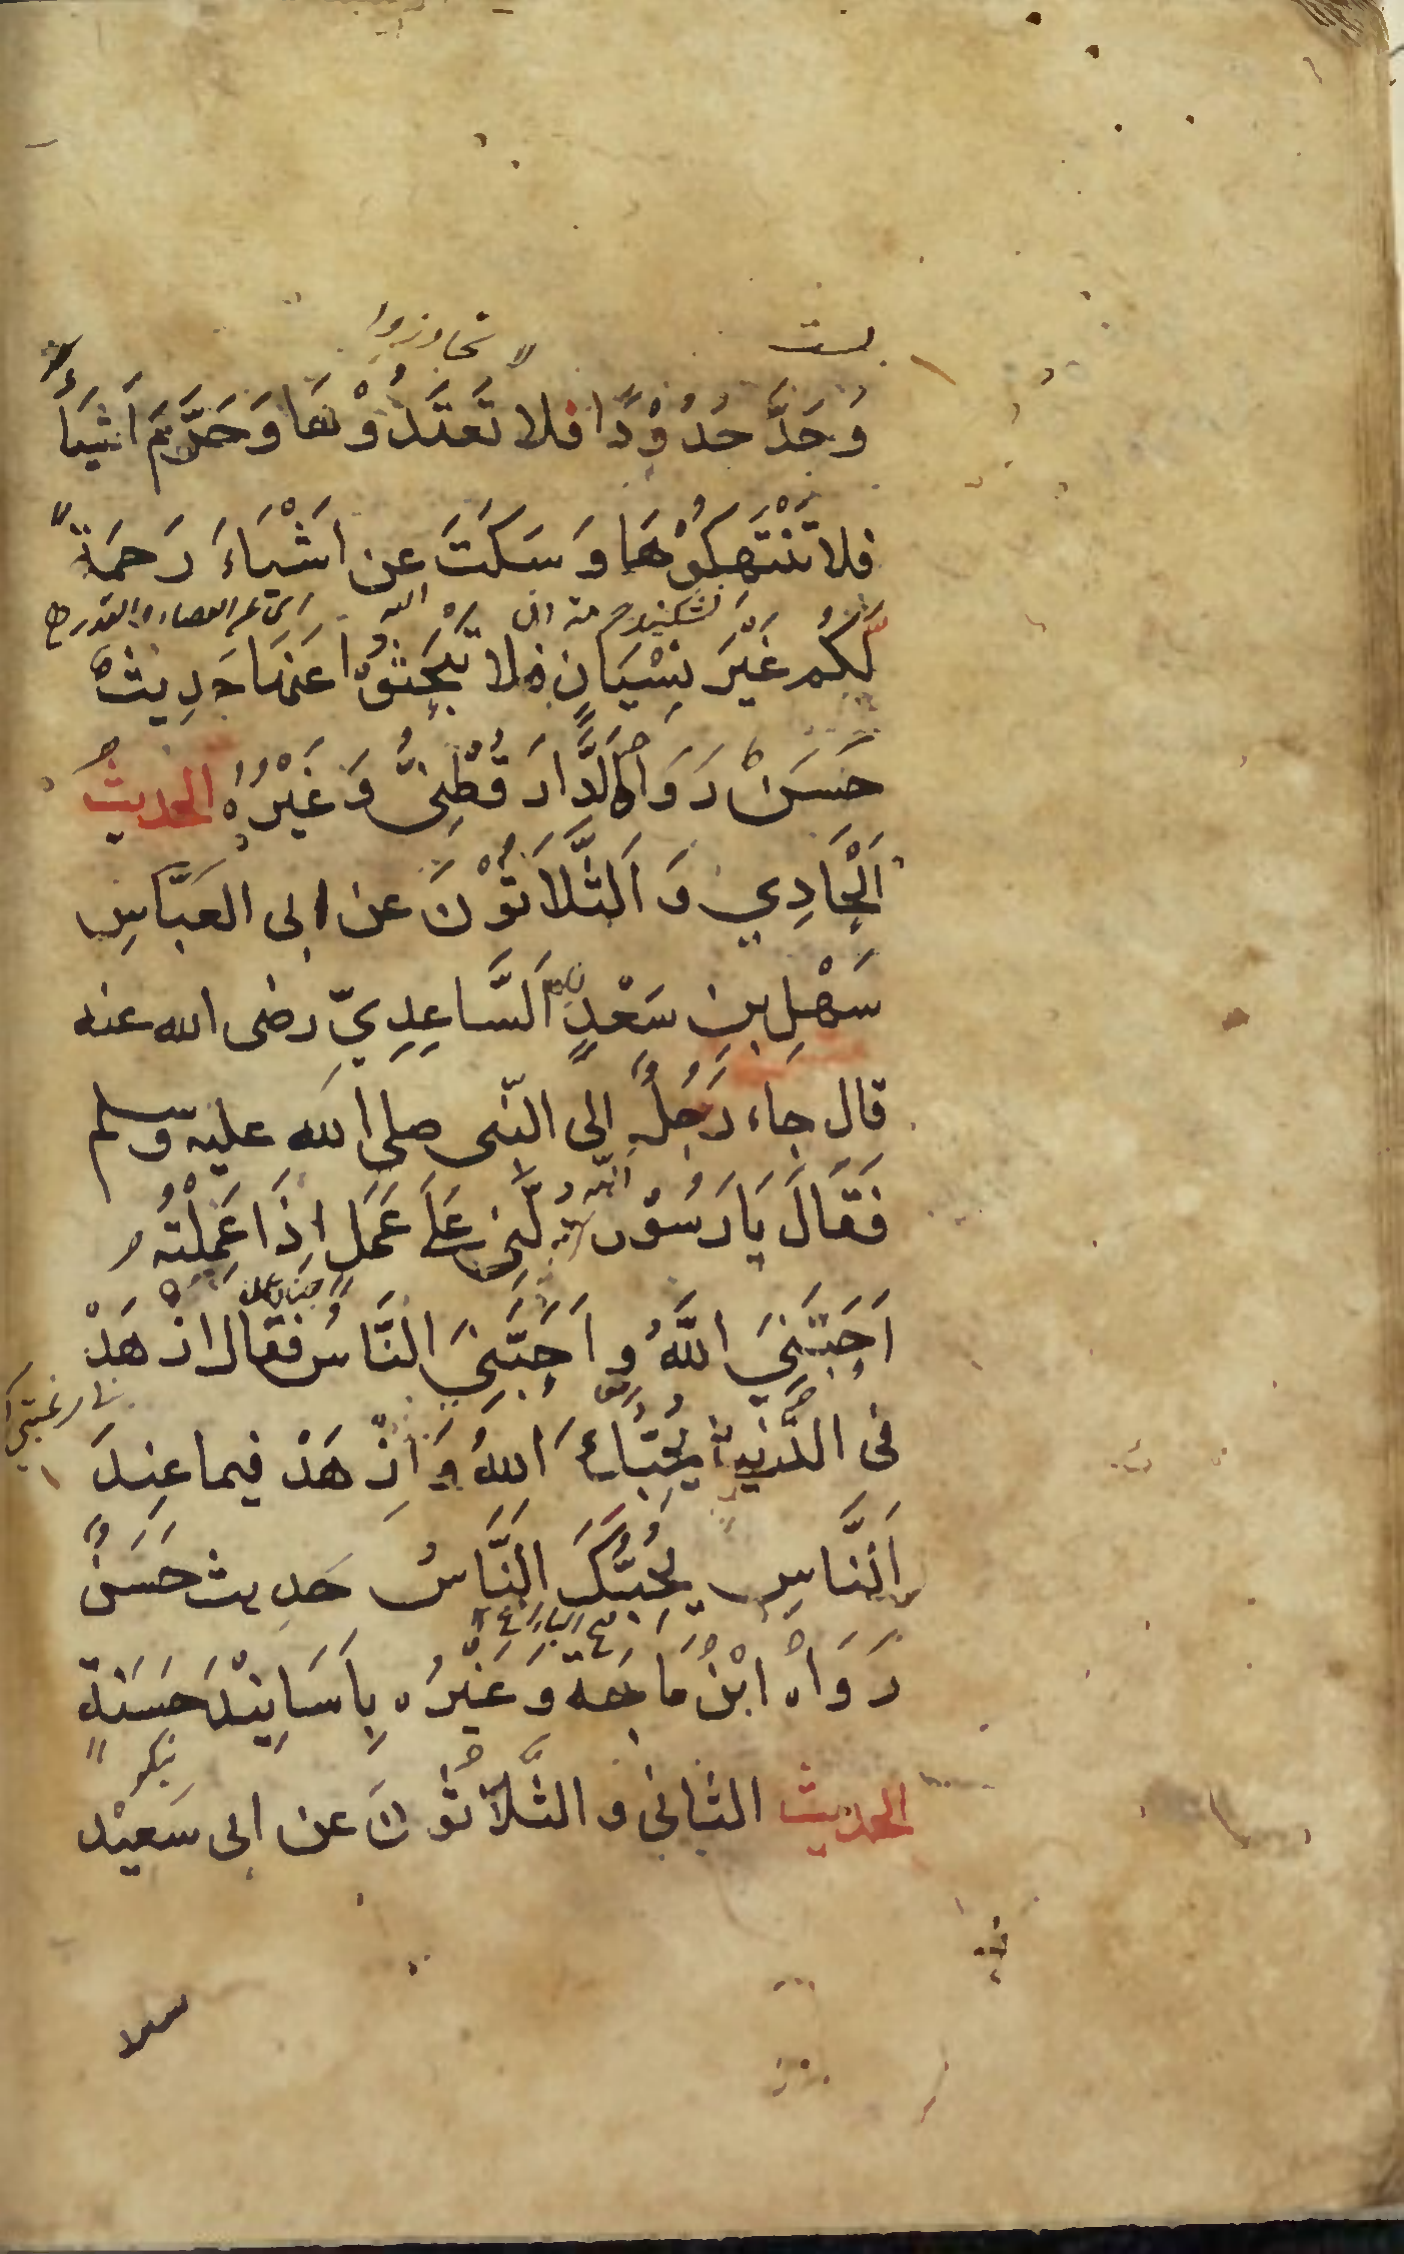 تجاوزوا
وَحَدَّ حُدُوْدًا فلا تَعْتَدُوْهَا وَحَرَّمَ اَشْيَاءَ
فلا تَنْتَهِكُوْهَا وَ سَكَتَ عن اَشْيَاءَ رَحمَةً
لَّكُم غَيْرَ نِسْيَانٍ فلا تَبْحَثُوْا عَنهَا حَدِيثٌ
حَسَنٌ رَوَاهُ الدَّارَقُطْنِىُّ وَ غَيْرُهُ الحديث
اَلْحَادِي وَ الثَّلَاثُوْنَ عن ابى العَبَّاسِ
سَهْلِ بنِ سَعْدٍ اَلسَّاعِدِيّ رضى الله عنه
قال جاء رَجُلٌ الى النّبى صلى الله عليه وسلم
فَقَالَ يَا رَسُوْل الله دُلَّنِى عَلَى عَمَلٍ اِذَا عَمِلْتُه
اَحَبَّنِيَ اللَّهُ و اَحَبَّنِيَ النَّاسُ فقال ازْهَدْ
فى الدُّنيا يُحِبُّكَ اللهُ وَ ازْهَدْ فيما عِندَ
اَلنَّاسِ يُحِبُّكَ النَّاسُ حَدِيث حَسَنٌ
رَوَاهُ ابْنُ مَاجَة وَ غَيْرُه بِاَسَانِيْدَ حَسَنَةٍ
الحديث الثانى و الثَّلَاثُوْنَ عن ابى سَعِيْد